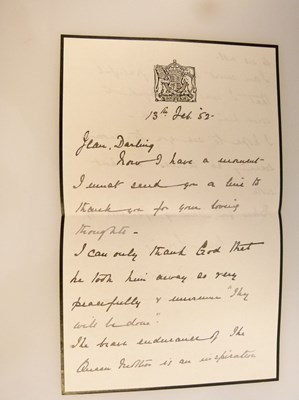 13th Feb '52-
Jean, Darling
Now I have a moment
I must send you a line to
thank you for your loving
thoughts -
I can only thank God that
he took him away so very
peacefully & "Thy
will be done".
The brave endurance of The
Queen Mother is an inspiration